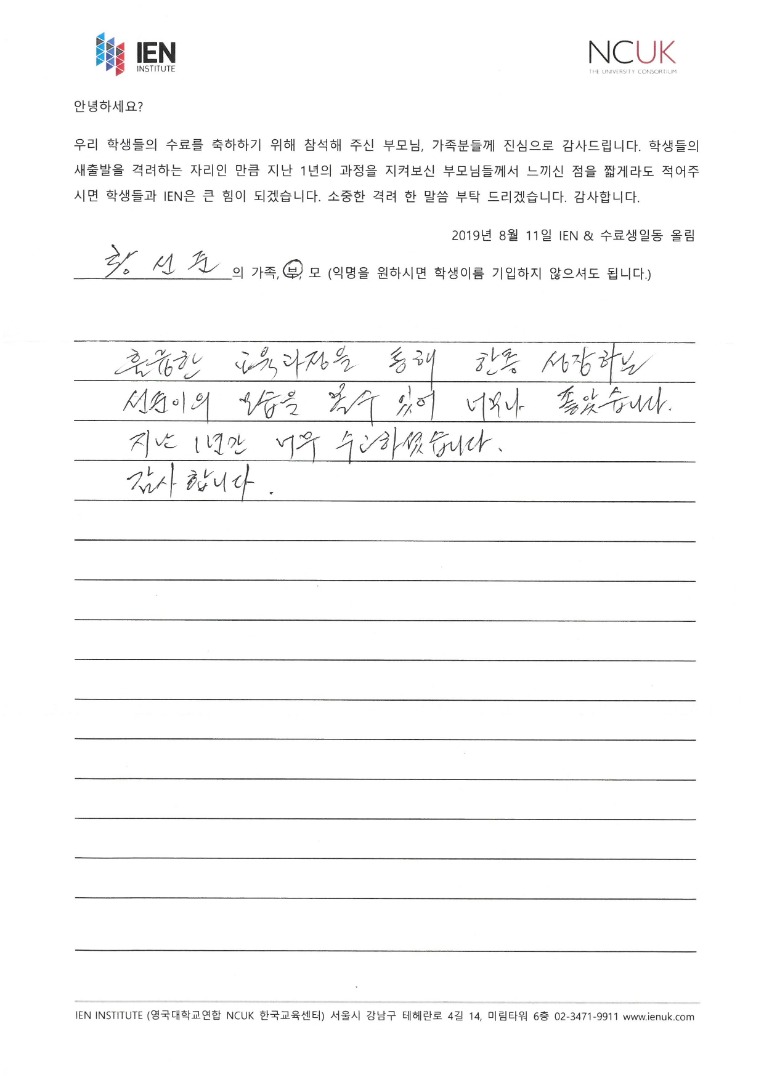 IEN
INSTITUTE
NCUK
THE UNIVERSITY CONSORTIUM
안녕하세요?
우리 학생들의 수료를 축하하기 위해 참석해 주신 부모님, 가족분들께 진심으로 감사드립니다. 학생들의
새출발을 격려하는 자리인 만큼 지난 1년의 과정을 지켜보신 부모님들께서 느끼신 점을 짧게라도 적어주
시면 학생들과 IEN은 큰 힘이 되겠습니다. 소중한 격려 한 말씀 부탁 드리겠습니다. 감사합니다.
2019년 8월 11일 IEN & 수료생일동 올림
황선준의 가족, 부, 모 (익명을 원하시면 학생이름 기입하지 않으셔도 됩니다.)
훌륭한 교육과정을 통해 한층 성장하는
선준이의 모습을 볼수 있어 너무나 좋았습니다.
지난 1년간 너무 수고하셨습니다.
감사합니다.
IEN INSTITUTE (영국대학교연합 NCUK 한국교육센터) 서울시 강남구 테헤란로 4길 14, 미림타워 6층 02-3471-9911 www.ienuk.com